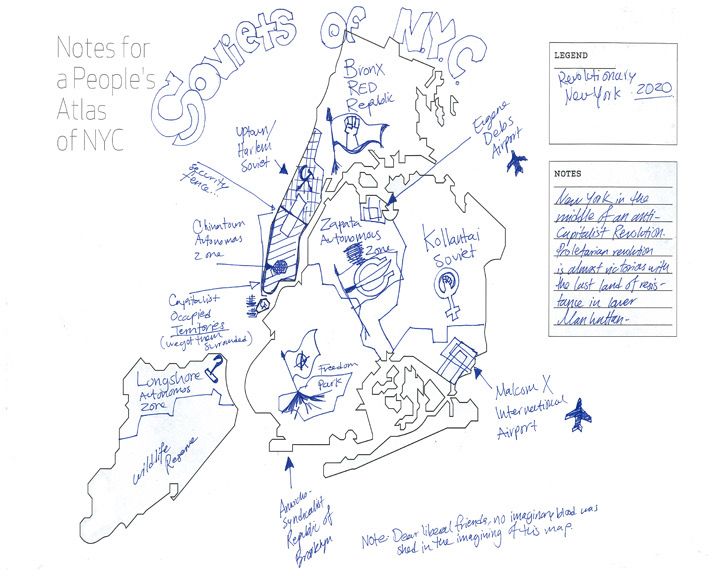 Soviets of N.Y.C.
Notes for
a People's
Atlas
of NYC
LEGEND
Revolutionary
New York 2020
NOTES
New York in the
middle of an anti-
Capitalist Revolution.
Proletarian revolution
is almost victorios with
the last land of resis-
tance in lower
Manhattan-
Bronx
RED
Republic
Eugene
Debs
Airport
Uptown/
Harlem
Soviet
Security
Fence...
Chinatown
Autonomas
Zone
Zapata
Autonomous
Zone
Kollantai
Soviet
Capitalist
Occupied
Territories
(we got them
surrounded)
Freedom
Park
Longshore
Autonomos
Zone
Wildlife
Reserve
Malcom X
International
Airport
Anarcho-
Syndicalist
Republic of
Brooklyn
Note: Dear liberal friends, no imaginary blood was
shed in the imagining of this map.